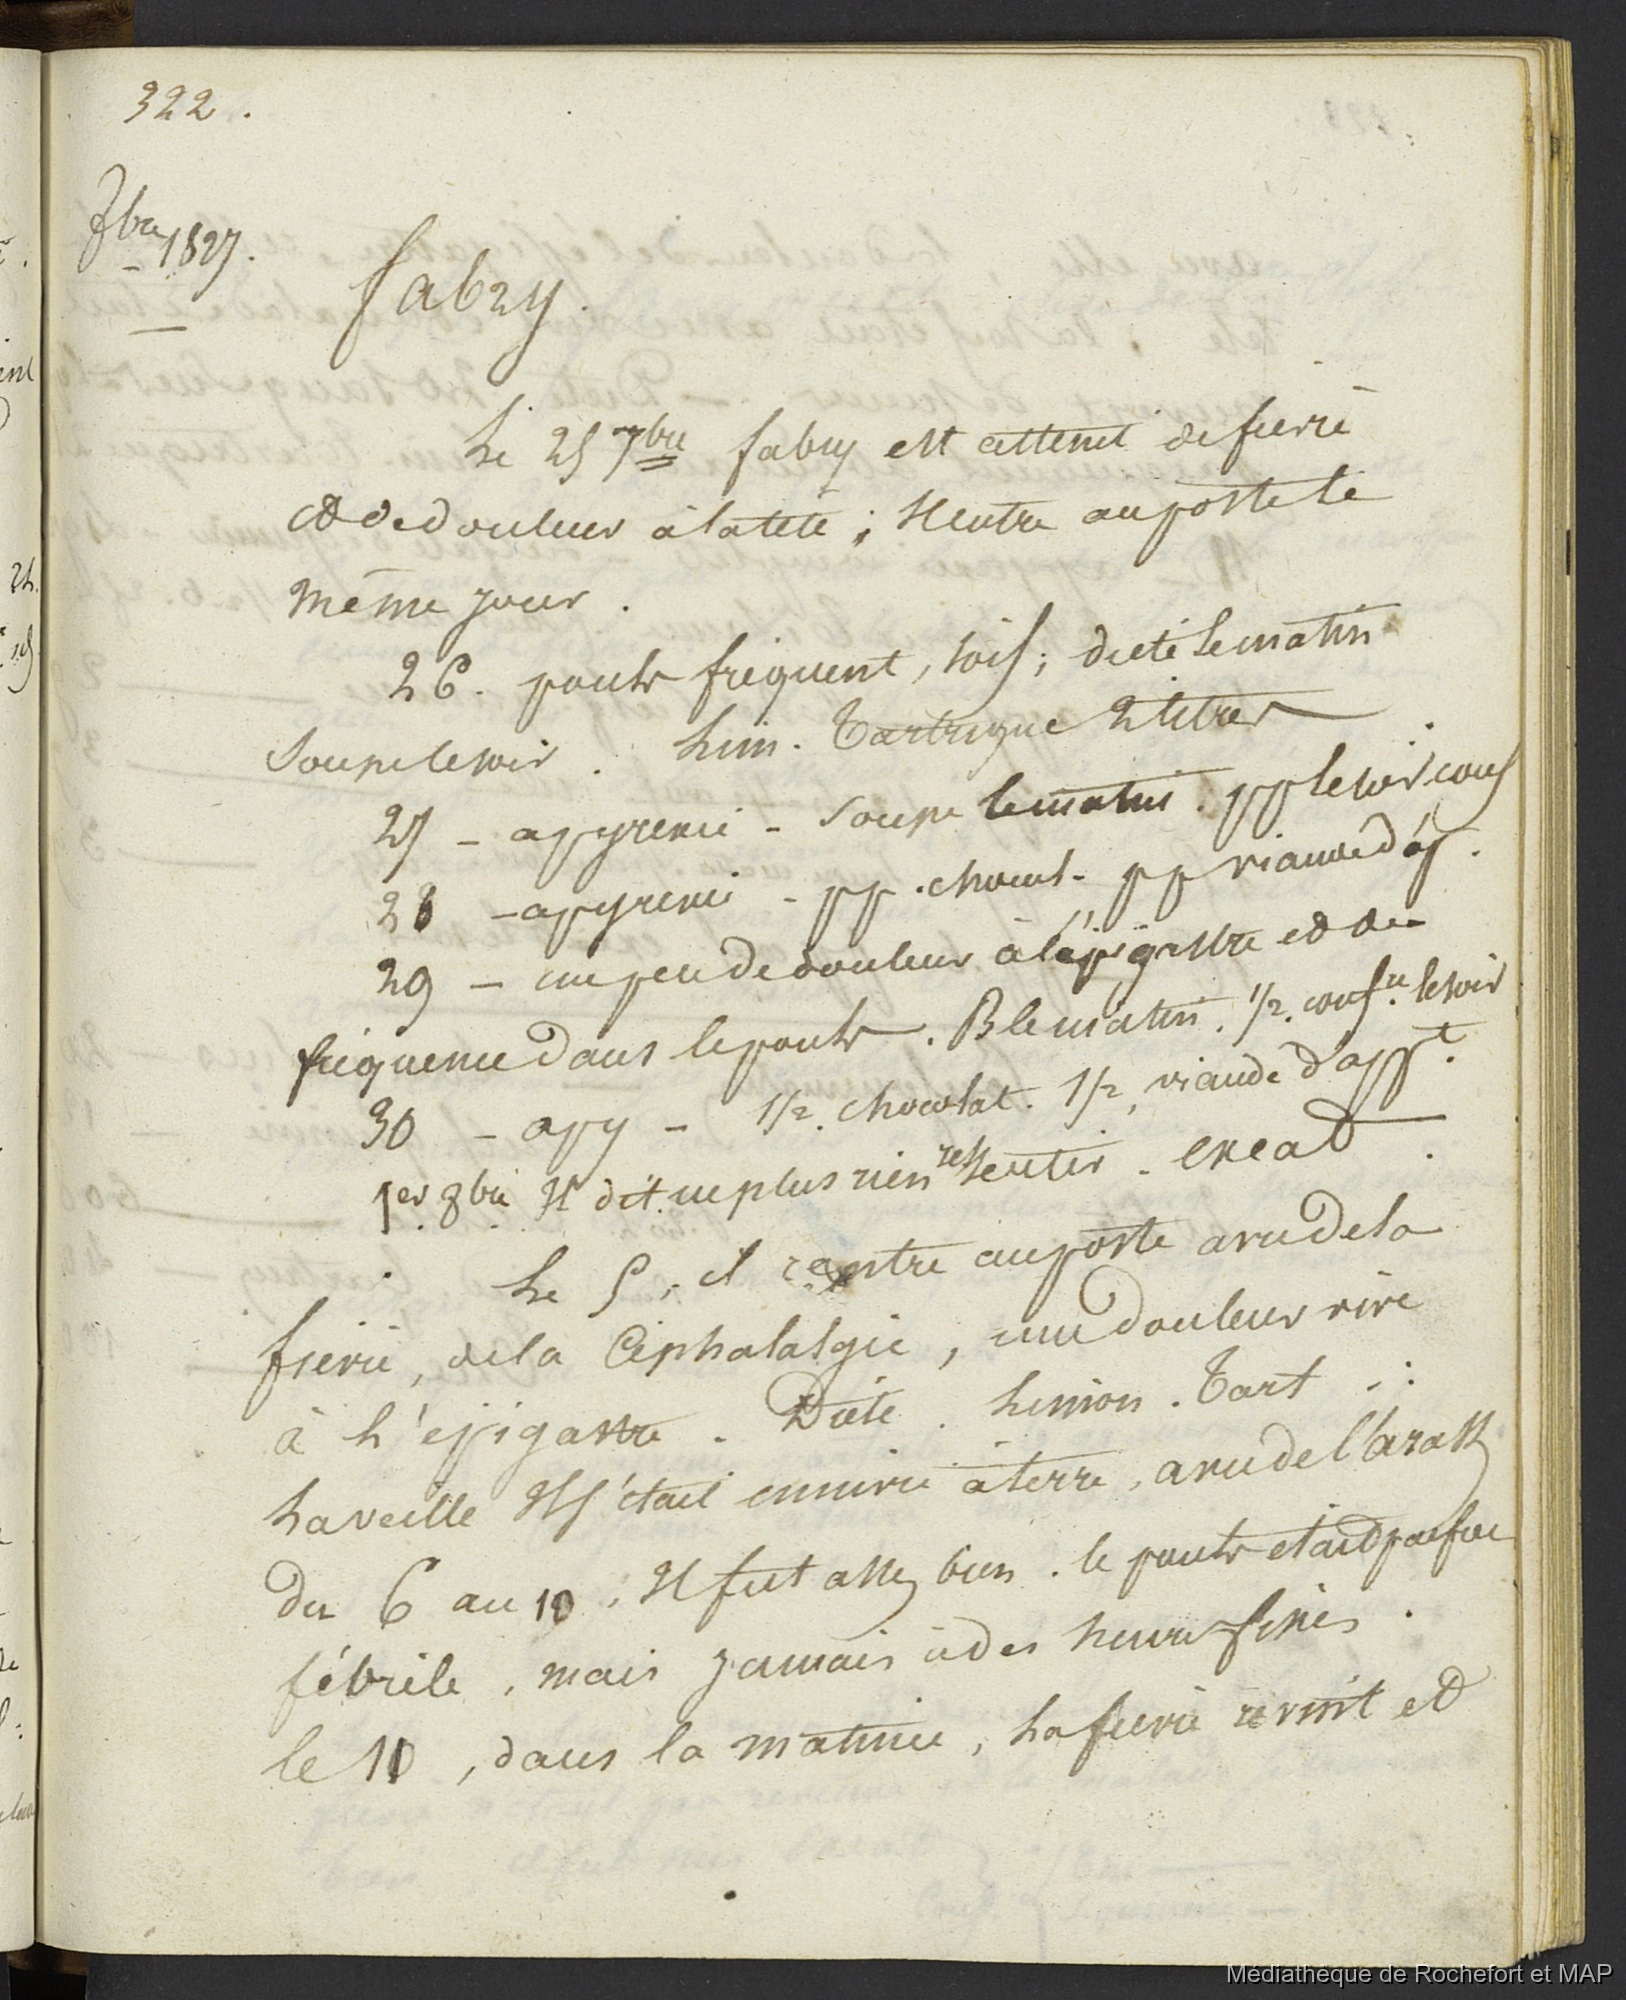 322.
7bre 1827.
fabry.
Le 25 7bre fabry est atteint de fievre
et de douleur à la tête; Il entre au poste le
même jour.
26. pouls fréquent, soif; diete le matin
soupe le soir. Lim. Tartrique 2 litres
27 - apyrexie - soupe le matin. pp le soir conf
28 - apyrexie - pp. chocol. pp viande d'ap.
29 - un peu de douleur à l'épigastre et de
fréquence dans le pouls. B le matin. 1/2. confre. le soir
30 - apy - 1/2. chocolat. 1/2, viande d'appt.
1er. 8bre Il dit ne plus rien ressentir. exeat.
Le 5, il rentre au poste avec de la
fievre, de la Céphalalgie, une douleur vive
à L'épigastre. Diète. Limon. Tart.:
La veille Il s'était ennivré à terre, avec de l'arak
Du 6 au 10, Il fut assez bien. le pouls etait parfois
fébrile, mais jamais à des heures fixes.
le 10, dans la matinée, La fievre revint et
Médiathèque de Rochefort et MAP